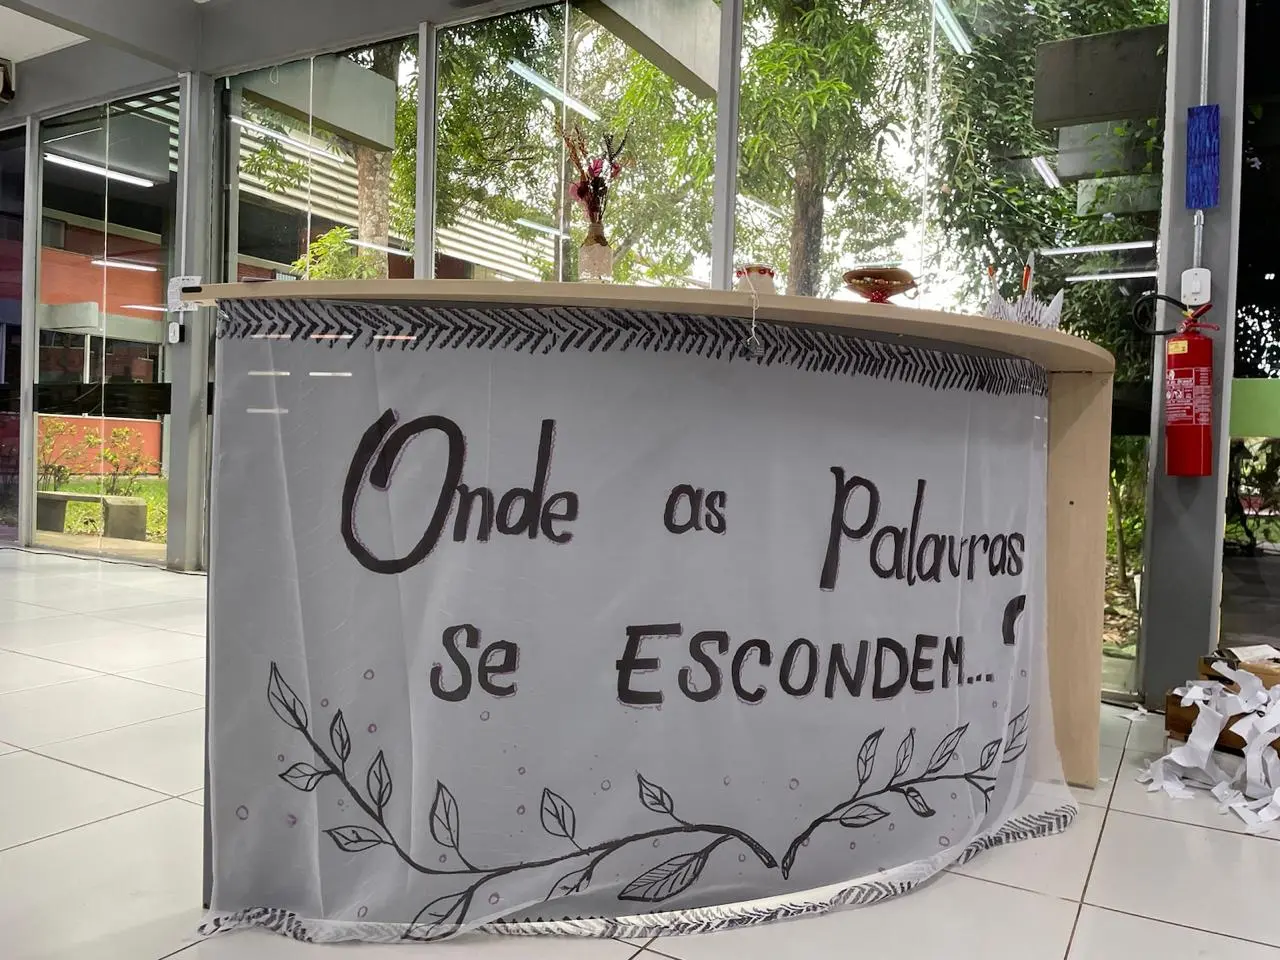 Onde as Palavras
se ESCONDEM...